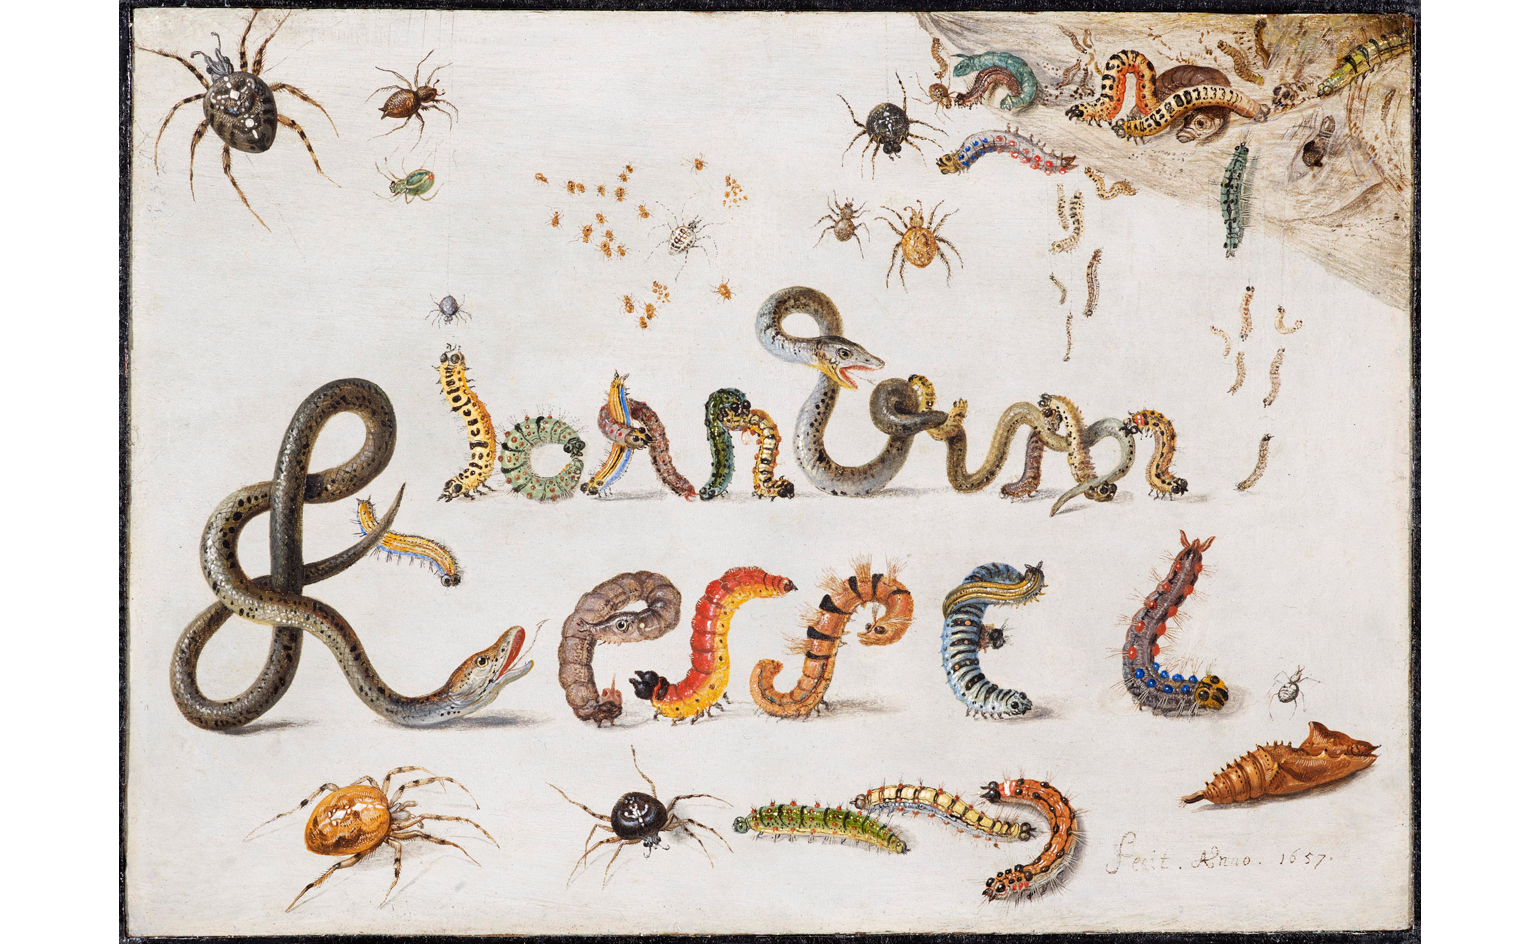 Joan van
Kessel
fecit. Anno. 1657.